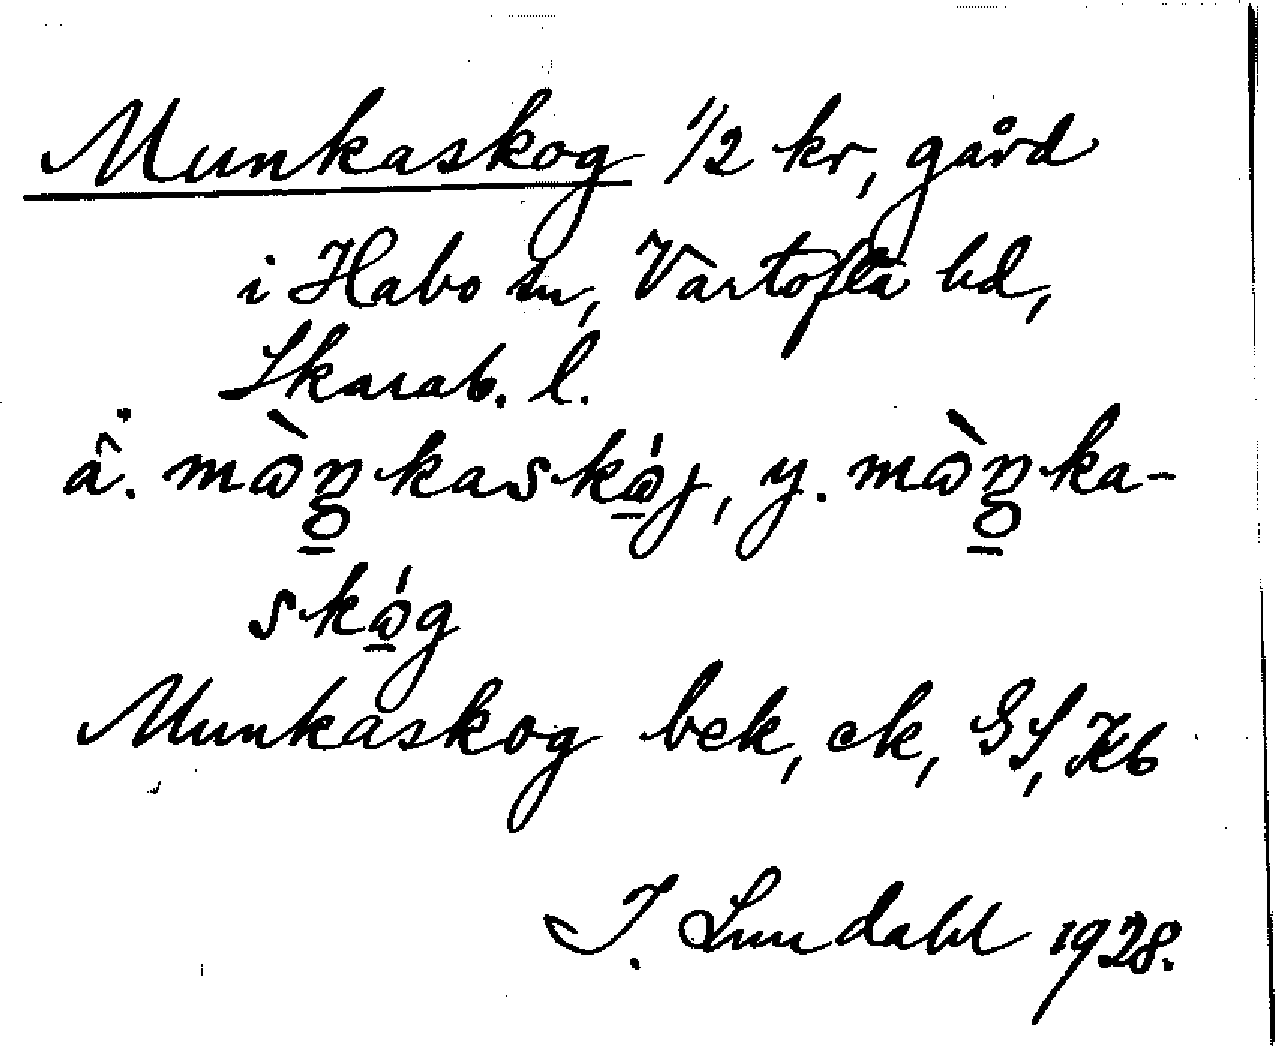 Munkaskog 1/2 kr, gård
i Habo sn, Vartofta hd,
Skarab. l.
ä. mòŋkaskój, y. mòŋka-
skóg
Munkaskog bek, ek, GS, Kb
I. Lundahl 1928.